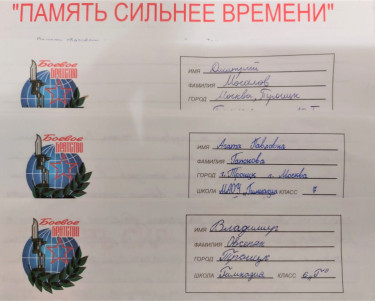 "ПАМЯТЬ СИЛЬНЕЕ ВРЕМЕНИ"
Боевое
БРАТСТВО
ИМЯ Дмитрий
ФАМИЛИЯ
ГОРОД Москва, Троицк
Боевое
БРАТСТВО
ИМЯ Агата Павловна
ФАМИЛИЯ
ГОРОД г. Троицк г. Москва
ШКОЛА МАОУ Гимназия КЛАСС 7
Боевое
БРАТСТВО
ИМЯ Владимир
ФАМИЛИЯ Овсепян
ГОРОД Троицк
ШКОЛА Гимназия КЛАСС